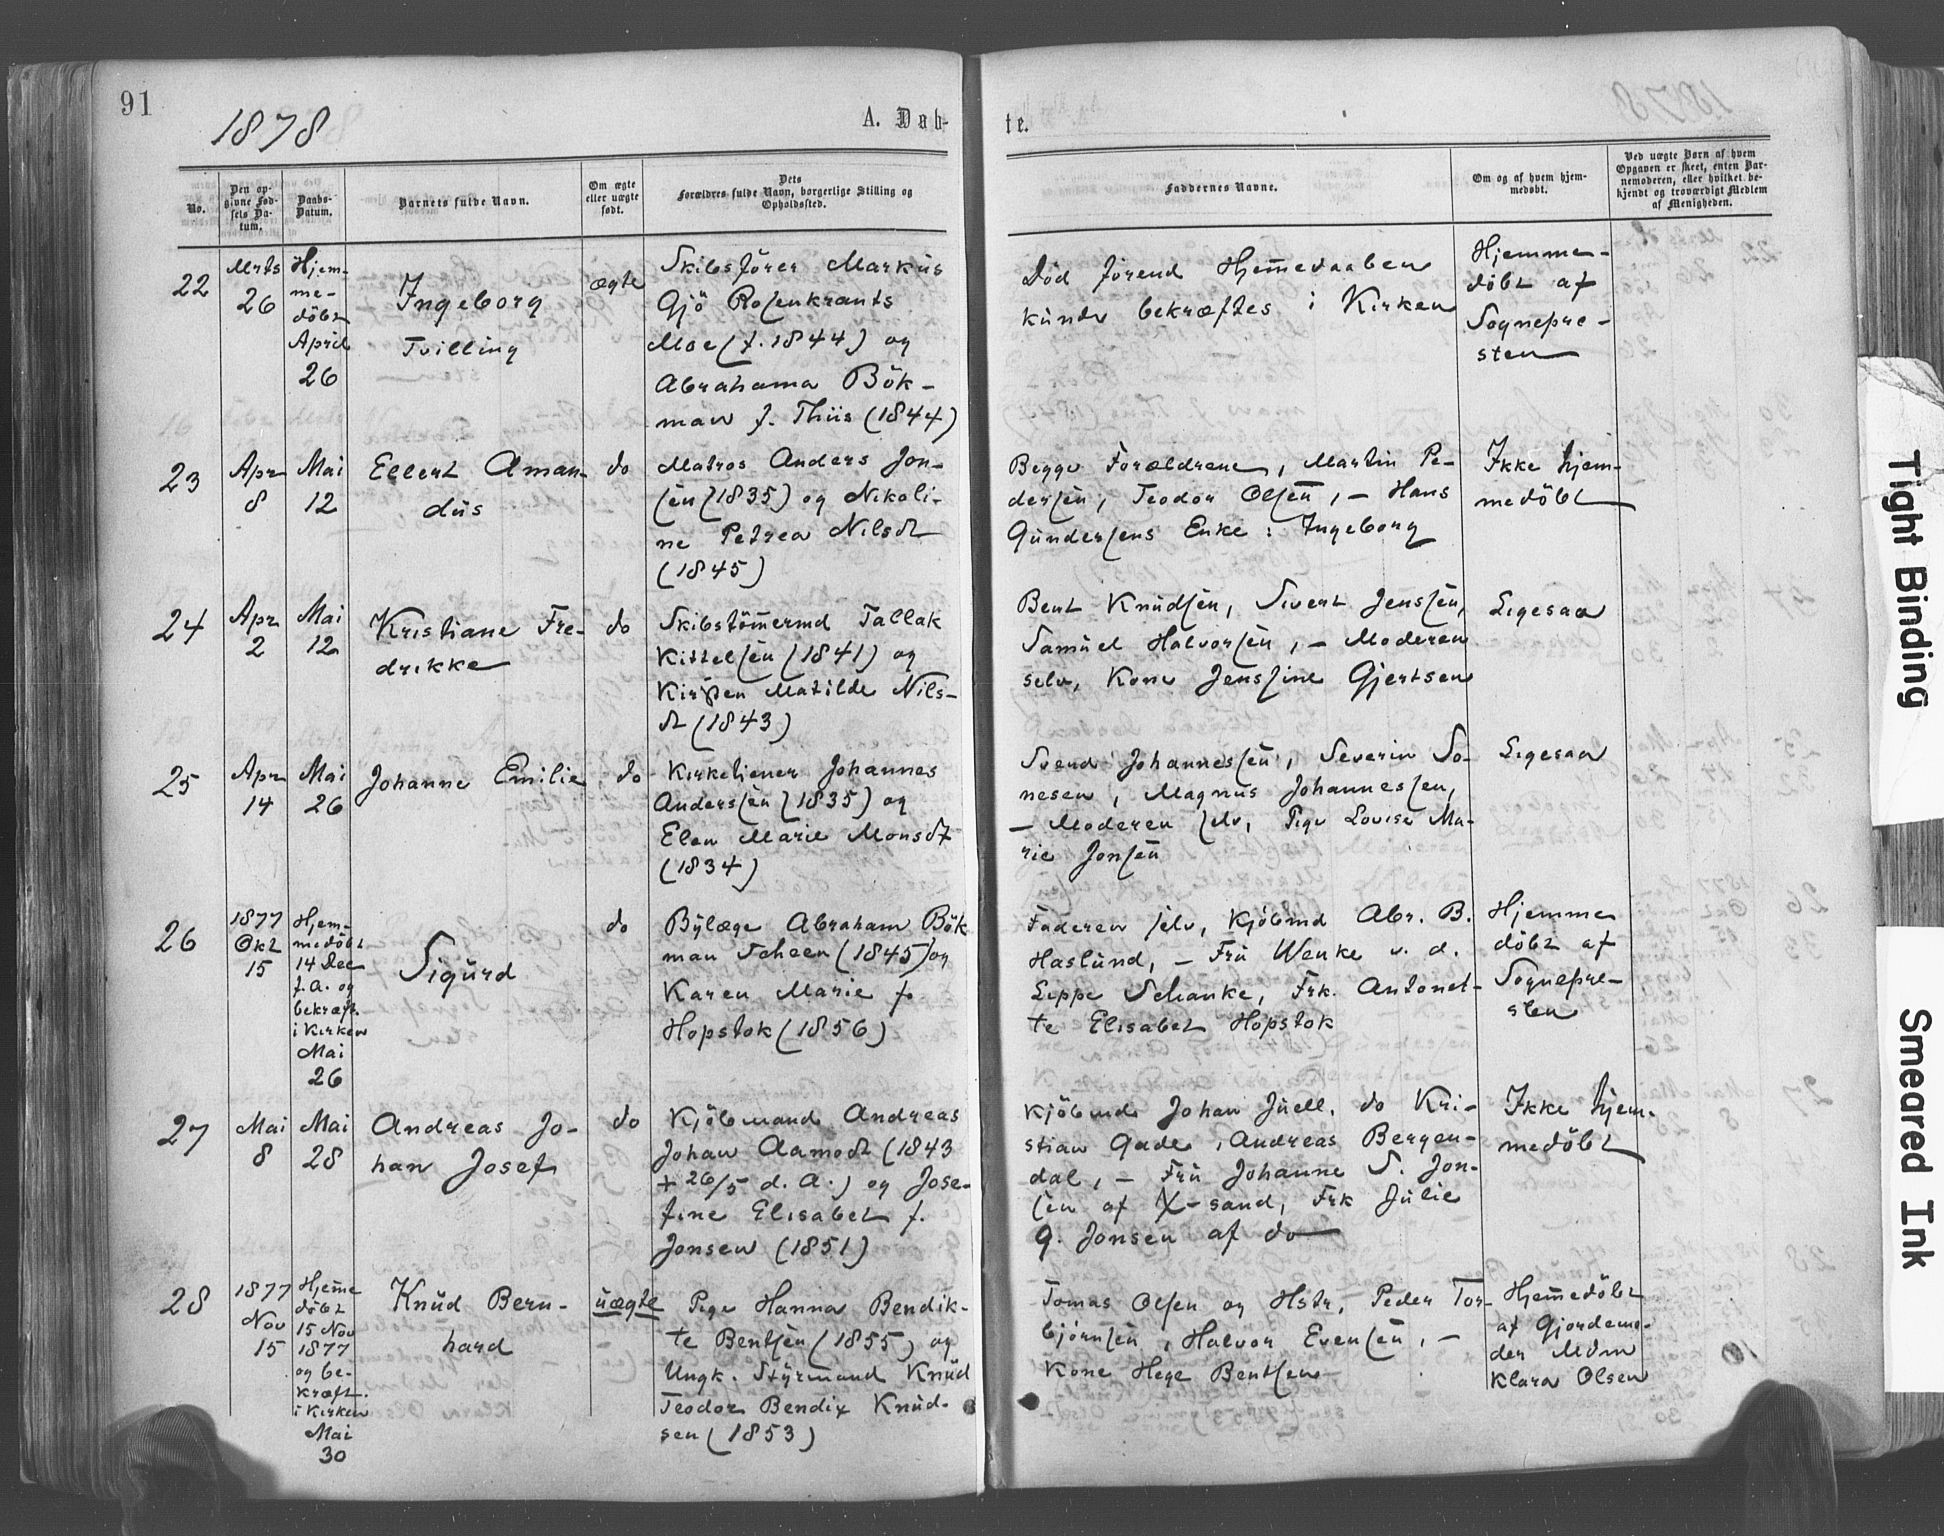 91
1878
A. Døb-
te.
No.
Den op-
givne Fød-
sels Da-
tum.
Daabs-
Datum.
Barnets fulde Navn.
Om ægte
eller uægte
født.
Dets
Forældres fulde Navn, borgerlige Stilling og
Opholdssted.
Faddernes Navne.
Om og af hvem hjem-
medøbt.
Ved uægte Børn af hvem
Opgaven er skeet, enten Bar-
nemoderen, eller hvilket be-
kjendt og troværdigt Medlem
af Menigheden.
22
Mrts
26
Hjem-
me-
döbt
April
26
Ingeborg
Tvilling
ægte
Skibsförer Markus
Gjö Rosenkrants
Moe (f. 1844) og
Abrahama Bök-
man f. Thiis (1844)
Död förend Hjem̅edaaben
kunde bekræftes i Kirken
Hjemme-
döbt af
Sognepre-
sten
23
Apr
8
Mai
12
Ellert Aman-
dus
do
Matros Anders Jon-
sen (1835) og Nikoli-
ne Petrea Nilsdt
(1845)
Begge Forældrene, Martin Pe-
dersen, Teodor Olsen, - Hans
Gundersens Enke: Ingeborg
Ikke hjem-
medöbt
24
Apr
2
Mai
12
Kristiane Fre-
drikke
do
Skibstöm̅ermd Tallak
Kittelsen (1841) og
Kirsten Matilde Nils-
dt (1843)
Bent Knudsen, Sivert Jenssen,
Samuel Halvorsen, - Moderen
selv, Kone Jenssine Gjertsen
Ligesaa
25
Apr
14
Mai
26
Johanne Emilie
do
Kirketjener Johannes
Anderssen (1835) og
Elen Marie Monsdt
(1834)
Svend Johannessen, Severin So-
nesen, Magnus Johannessen,
- Moderen selv, Pige Lovise Ma-
rie Jonsen
Ligesaa
26
1877
Okt
15
Hjem-
medöbt
14 Dec
f. A. og
bekræft.
i Kirken
Mai
26
Sigurd
do
Bylæge Abraham Bök
man Scheen (1845) og
Karen Marie f.
Hopstok (1856)
Faderen selv, Kjöbmd Abr. B.
Haslund, - Fru Wenke v. d.
Lippe Schanke, Frk. Antonet-
te Elisabet Hopstok
Hjemme
döbt af
Sognepre-
sten
27
Mai
8
Mai
28
Andreas Jo-
han Josef
do
Kjöbmand Andreas
Johan Aamodt (1843
+ 26/5 d. A.) og Jose-
fine Elisabet f.
Jonsen (1851)
Kjöbmd Johan Juell, do Kri-
stian Gade, Andreas Bergen-
dal, - Fru Johanne S. Jon-
sen af X-sand, Frk Julie
G. Jonsen af do
Ikke hjem-
medöbt
28
1877
Nov
15
Hjem̅e
döbt
15 Nov
1877
og be-
kræft.
i Kirken
Mai
30
Knud Bern-
hard
uægte
Pige Hanna Bendik-
te Bentsen (1855) og
Ungk. Styrmand Knud
Teodor Bendix Knud-
sen (1853)
Tomas Olsen og Hstr, Peder Tor-
björnsen, Halvor Evensen, -
Kone Hege Bentsen
Hjem̅edöbt
af Gjordemo-
der Mdm
Klara Olsen
Tight Binding
Smeared Ink